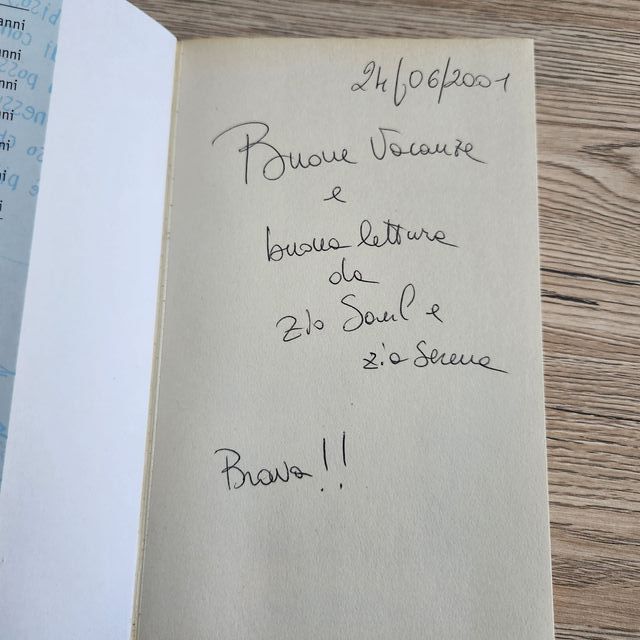 anni
anni
anni
nni
ni
ni
i
24/06/2001
Buone Vacanze
e
buona lettura
da
zio Saul e
zia Serena
Brava!!